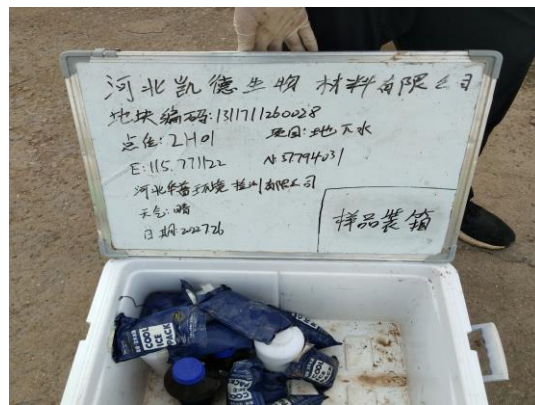 河北凯德生物材料有限公司
地块编码:1311711260028
点位:2H01 项目:地下水
E:115.771122 N:37.794031
河北华普环境检测有限公司
天气:晴
日期:2022.7.26
样品装箱
COOL
ICE
PACK
COOL
ICE
PACK